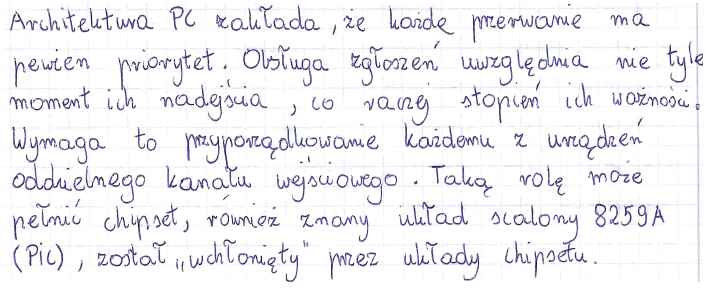 Architektura PC zakłada, że każde przerwanie ma
pewien priorytet. Obsługa zgłoszeń uwzględnia nie tyle
moment ich nadejścia, co raczej stopień ich ważności.
Wymaga to przyporządkowanie każdemu z urządzeń
oddzielnego kanału wejściowego. Taką rolę może
pełnić chipset, również znany układ scalony 8259A
(PiC), został „wchłonięty" przez układy chipsetu.